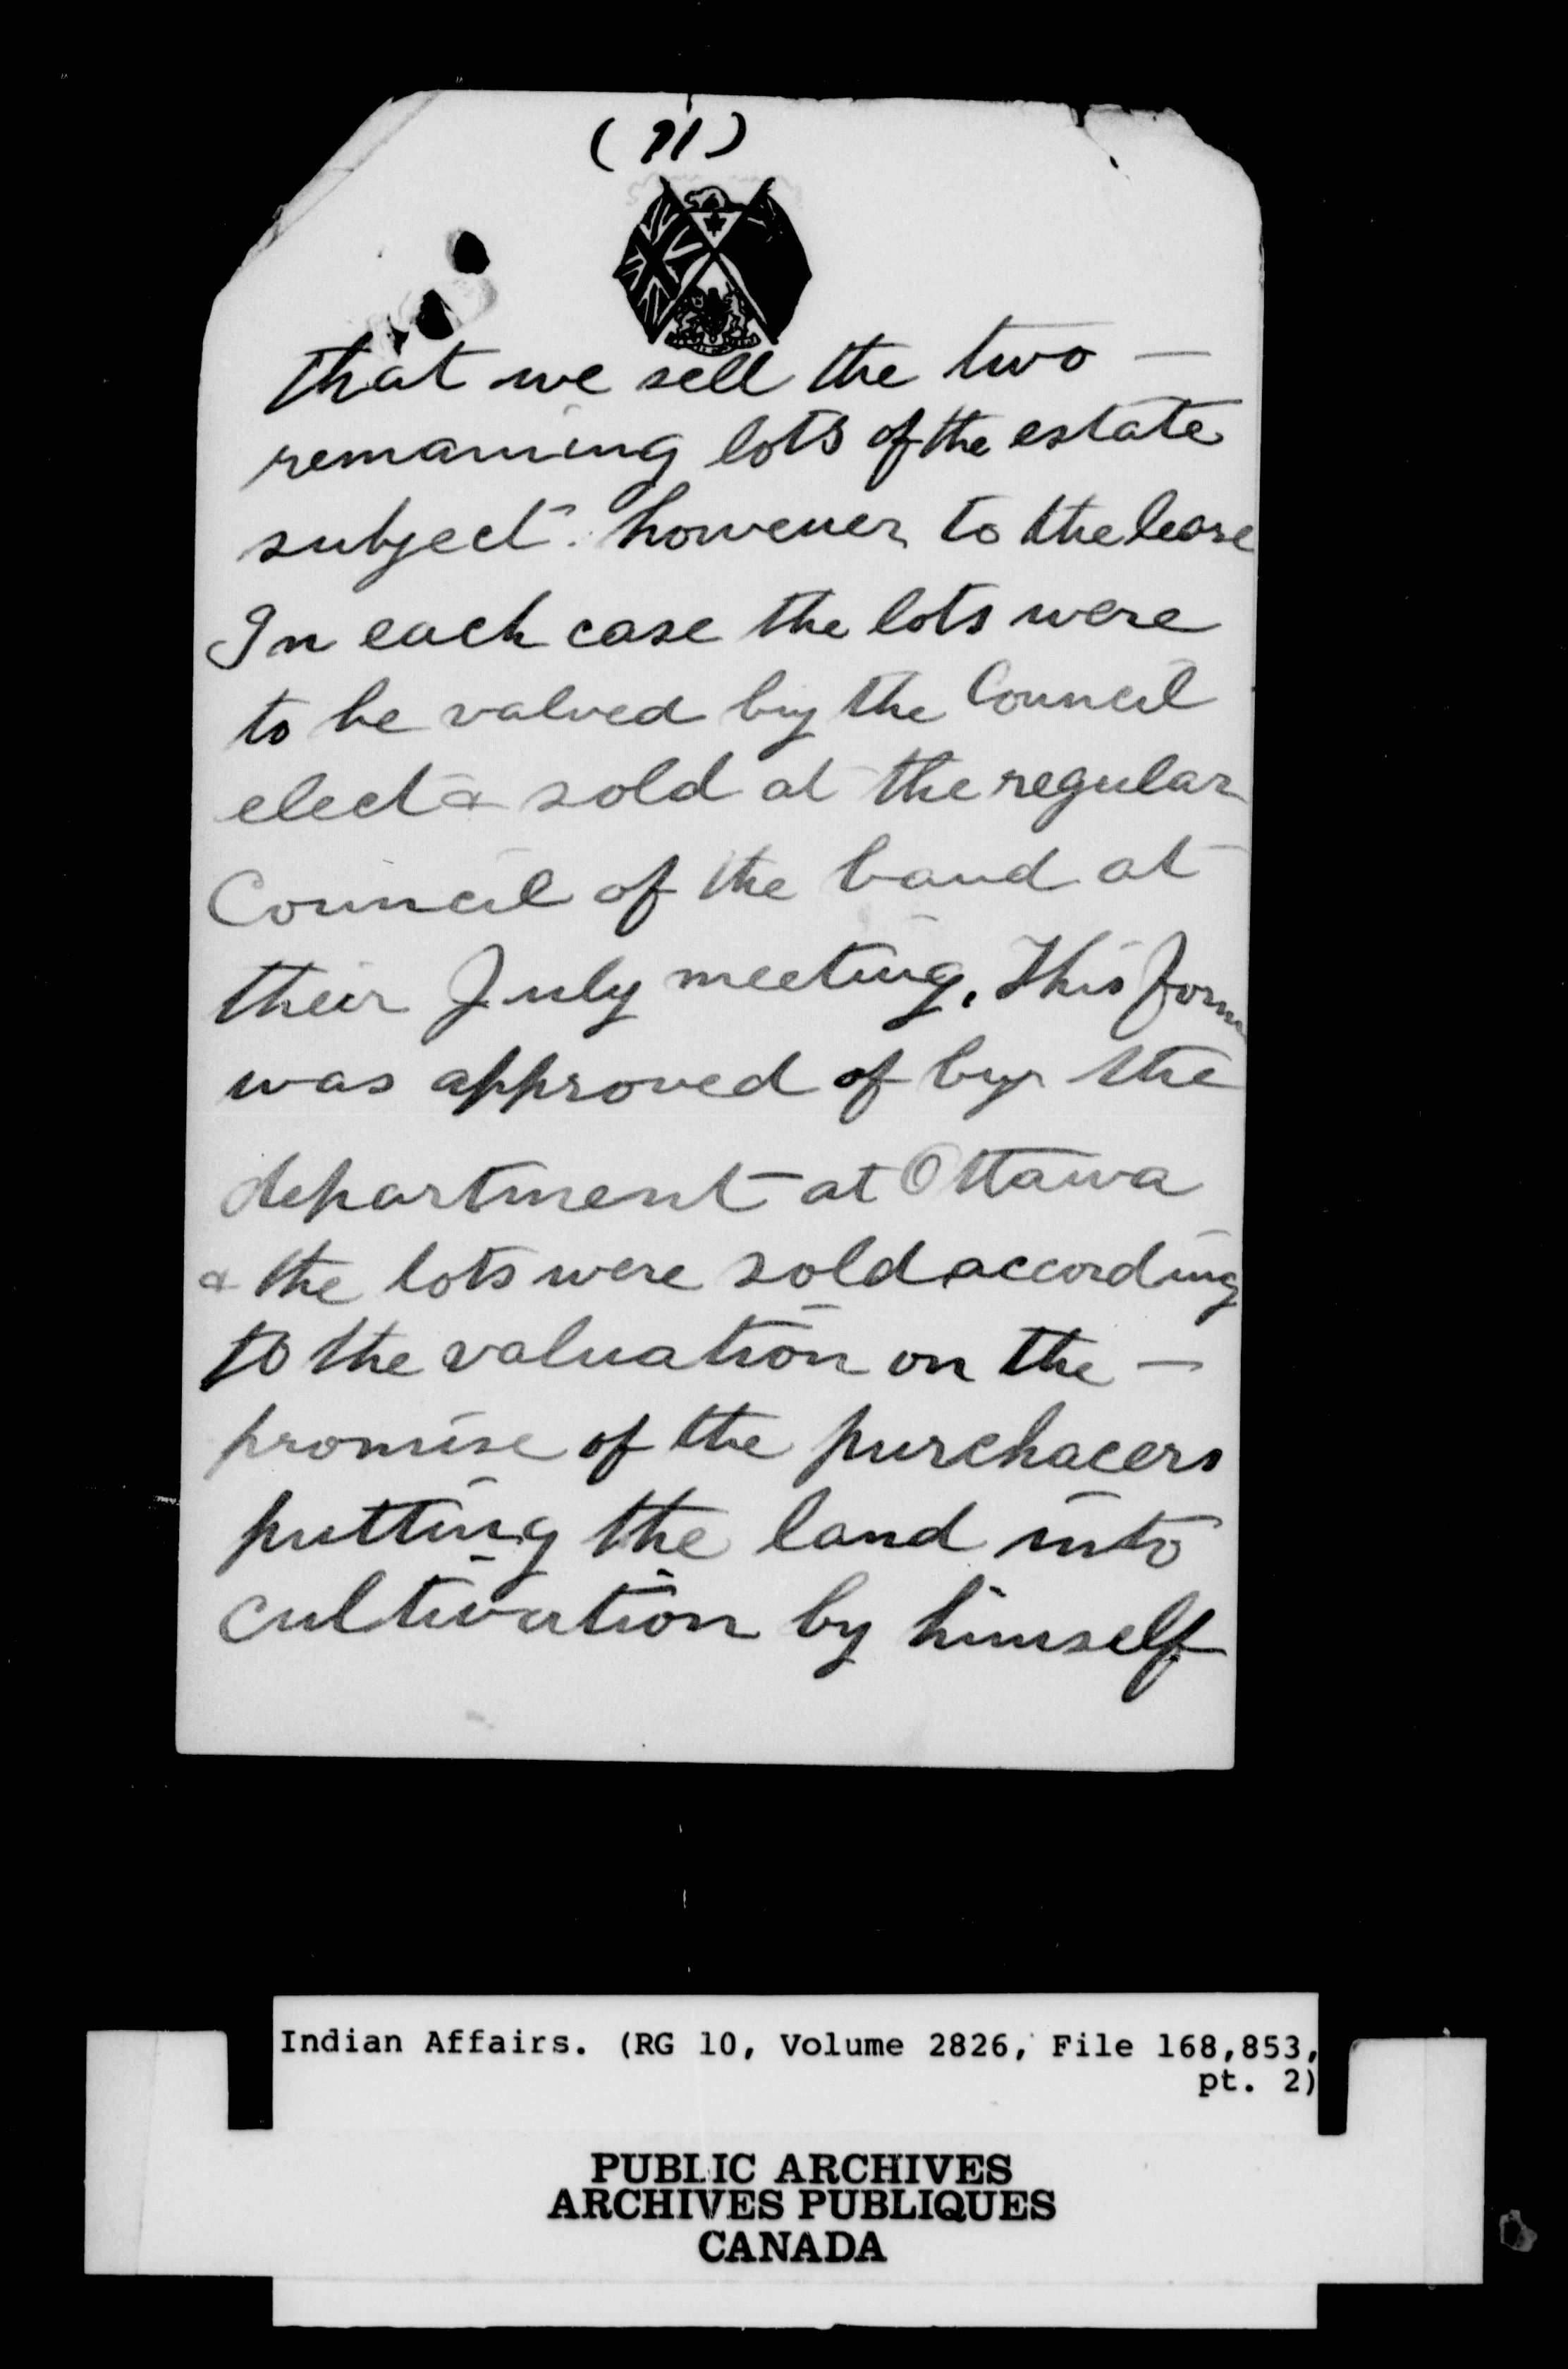 (11)
that we sell the two —
remaining lots of the estate
subject. however to the lease
In each case the lots were
to be valued by the Council
elect & sold at the regular
Council of the band at
their July meeting. This form
was approved of by the
department at Ottawa
& the lots were sold according
to the valuation on the —
promise of the purchacers
putting the land into
cultivation by himself
Indian Affairs. (RG 10, Volume 2826, File 168,853,
pt. 2)
PUBLIC ARCHIVES
ARCHIVES PUBLIQUES
CANADA